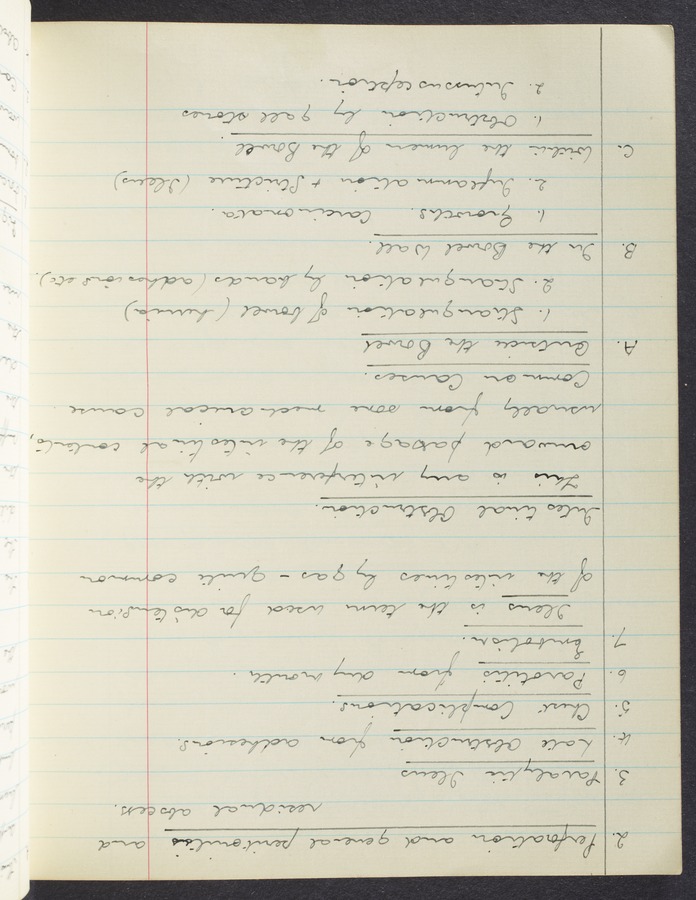 2. Perforation and general peritonitis and
residual abscess.
3. Paralytic Ileus
4. Late Obstruction from adhesions.
5. Chest Complications.
6. Parotitis from dry mouth.
7. Embolism.
Ileus is the term used for distension
of the intestines by gas - quite common
Intestinal Obstruction.
This is any interference with the
onward passage of the intestinal contents,
usually from some mechanical cause.
Common Causes.
A. Outside the Bowel
1. Strangulation of bowel (hernia)
2. Strangulation by bands (adhesions etc).
B. In the Bowel Wall.
1. Growths. Carcinomata.
2. Inflammation + Stricture (Ileus)
C. Within the lumen of the Bowel
1. Obstruction by gall stones
2. Intussusception.